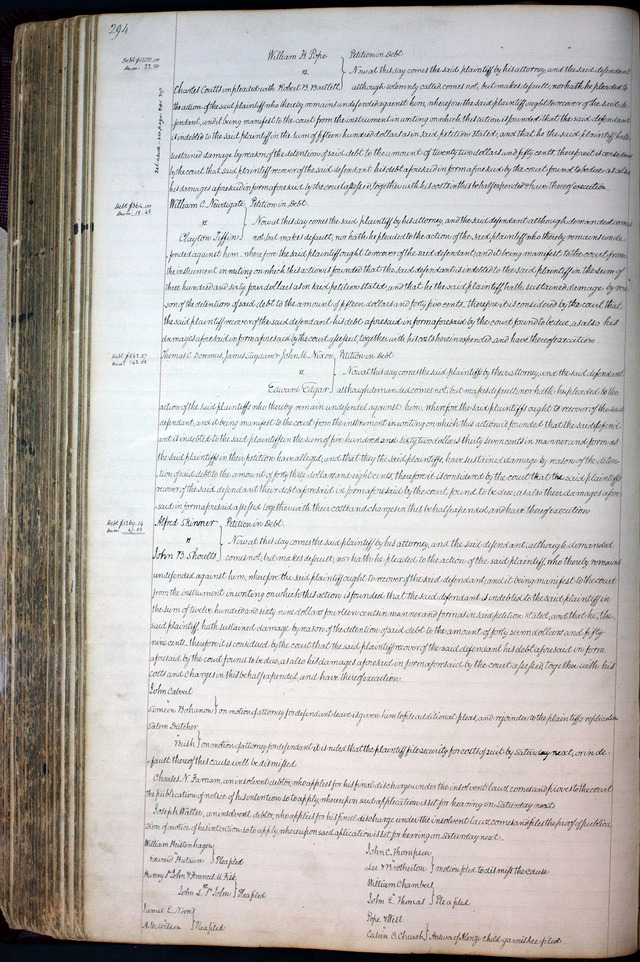 294
Debt $1500.00
Dam. 22.50
William H. Pope } Petition in Debt
vs. Now at this day comes the said plaintiff by his attorney, and the said defendant
Charles Coutts impleaded with Robert B. Bartlett although solemnly called comes not, but makes default, nor hath he pleaded to
the action of the said plaintiff who thereby remains undefended against him, wherefore the said plaintiff ought to recover of the said de-
fendant, and it being manifest to the court from the instrument in writing on which this action is founded that the said defendant
is indebted to the said plaintiff in the sum of fifteen hundred dollars as in said petition stated, and that he the said plaintiff hath
sustained damage by reason of the detention of said debt to the amount of twenty two dollars and fifty cents. therefore it is considered
by the court that said plaintiff recover of the said defendant his debt aforesaid in form aforesaid by the court found to be due as also
his damages aforesaid in form aforesaid by the court assessed, together with his costs in this behalf expended & have thereof execution.
Debt $364.00
Dam. 15.45
William C. Newdgate } Petition in Debt.
vs Now at this day comes the said plaintiff by his attorney, and the said defendant although demanded comes
Clayton Tiffin not, but makes default, nor hath he pleaded to the action of the said plaintiff who thereby remains unde-
fended against him. wherefore the said plaintiff ought to recover of the said defendant; and it being manifest to the court from
the instrument in writing on which this action is founded that the said defendant is indebted to the said plaintiff in the sum of
three hundred and sixty four dollars as in said petition stated, and that he the said plaintiff hath sustained damage by rea-
son of the detention of said debt to the amount of fifteen dollars and forty five cents. therefore it is considered by the court that
the said plaintiff recover of the said defendant his debt aforesaid in form aforesaid by the court found to be due, as also his
damages aforesaid in form aforesaid by the court assessed, together with his costs herein expended, and have thereof execution.
Debt $562.37
Dam. 43.08
Thomas C. Doremus, James Suydam & John M. Nixon } Petition in debt
vs. Now at this day comes the said plaintiffs by their attorney, and the said defendant
Edward Edgar although demanded comes not, but makes default, nor hath he pleaded to the
action of the said plaintiffs who thereby remain undefended against him, wherefore the said plaintiffs ought to recover of the said
defendant, and it being manifest to the court from the instrument in writing on which this action is founded that the said defend-
ant is indebted to the said plaintiffs in the sum of five hundred and sixty two dollars thirty seven cents in manner and form as
the said plaintiffs in their petition have alleged, and that they the said plaintiffs, have sustained damage by reason of the deten-
tion of said debt to the amount of forty three dollars and eight cents, therefore it is considered by the court that the said plaintiffs
recover of the said defendant their debt aforesaid in form aforesaid by the court, found to be due, as also their damages afore-
said in form aforesaid assessed together with their costs and charges in this behalf expended, and have thereof execution
Debt $1269.14
Dam. 47.59
Alfred Skinner } Petition in Debt.
vs Now at this day comes the said plaintiff by his attorney, and the said defendant, although demanded
John B. Shoults comes not, but makes default, nor hath he pleaded to the action of the said plaintiff, who thereby remains
undefended against him, wherefore the said plaintiff ought to recover of the said defendant, and it being manifest to the court
from the instrument in writing on which this action is founded that the said defendant is indebted to the said plaintiff in
the sum of twelve hundred and sixty nine dollars fourteen cents in manner and form as in said petition stated, and that he, the
said plaintiff, hath sustained damage by reason of the detention of said debt to the amount of forty seven dollars and fifty
nine cents. therefore it is considered by the court that the said plaintiff recover of the said defendant his debt aforesaid in form
aforesaid by the court found to be due, as also his damages aforesaid in form aforesaid by the court assessed, together with his
costs and charges in this behalf expended, and have thereof execution.
John Calvert
Simeon Bohannon } on motion of attorney for defendant leave is given him to file additional pleas, and rejoinder to the plaintiff's replication
Salem Dutcher
Bush } on motion of attorney for defendant it is ruled that the plaintiff file security for costs of suit by Saturday next, or in de-
fault thereof this cause will be dismissed
Charles N. Farnam, an insolvent debtor, who applies for his final discharge under the insolvent law, comes and proves to the court
the publication of notice of his intention so to apply, whereupon said application is set for hearing on Saturday next
Joseph Walter, an insolvent debtor, who applies for his final discharge under the insolvent law, comes and files the proof of publica-
tion of notice of his intention so to apply, whereupon said application is set for hearing on Saturday next.
William Heistenhagen
Edward } Plea filed
Henry St John & Francis M. Fisk
John St John } Plea filed
James E. Nevil
A. W. Wilson } Plea filed
John C. Thompson
Lee & Brotherton } motion filed to dismiss the cause
William Chambers
John C. Thomas } Plea filed
Pope & Will
Calvin B. Church } Answer of Alonzo Child garnishee filed.